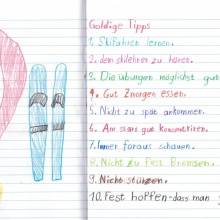 Goldige Tipps
1. Skifahren lernen.
2. dem skilehrer zu hören.
3. Die übungen möglichst gut
4. Gut Zmorgen essen.
5. Nicht zu spät ankommen.
6. Am start gut konzentriren.
7. Immer foraus schauen.
8. Nicht zu Fest Bremsen.
9. Nicht stürzen.
10. Fest hoffen - dass man